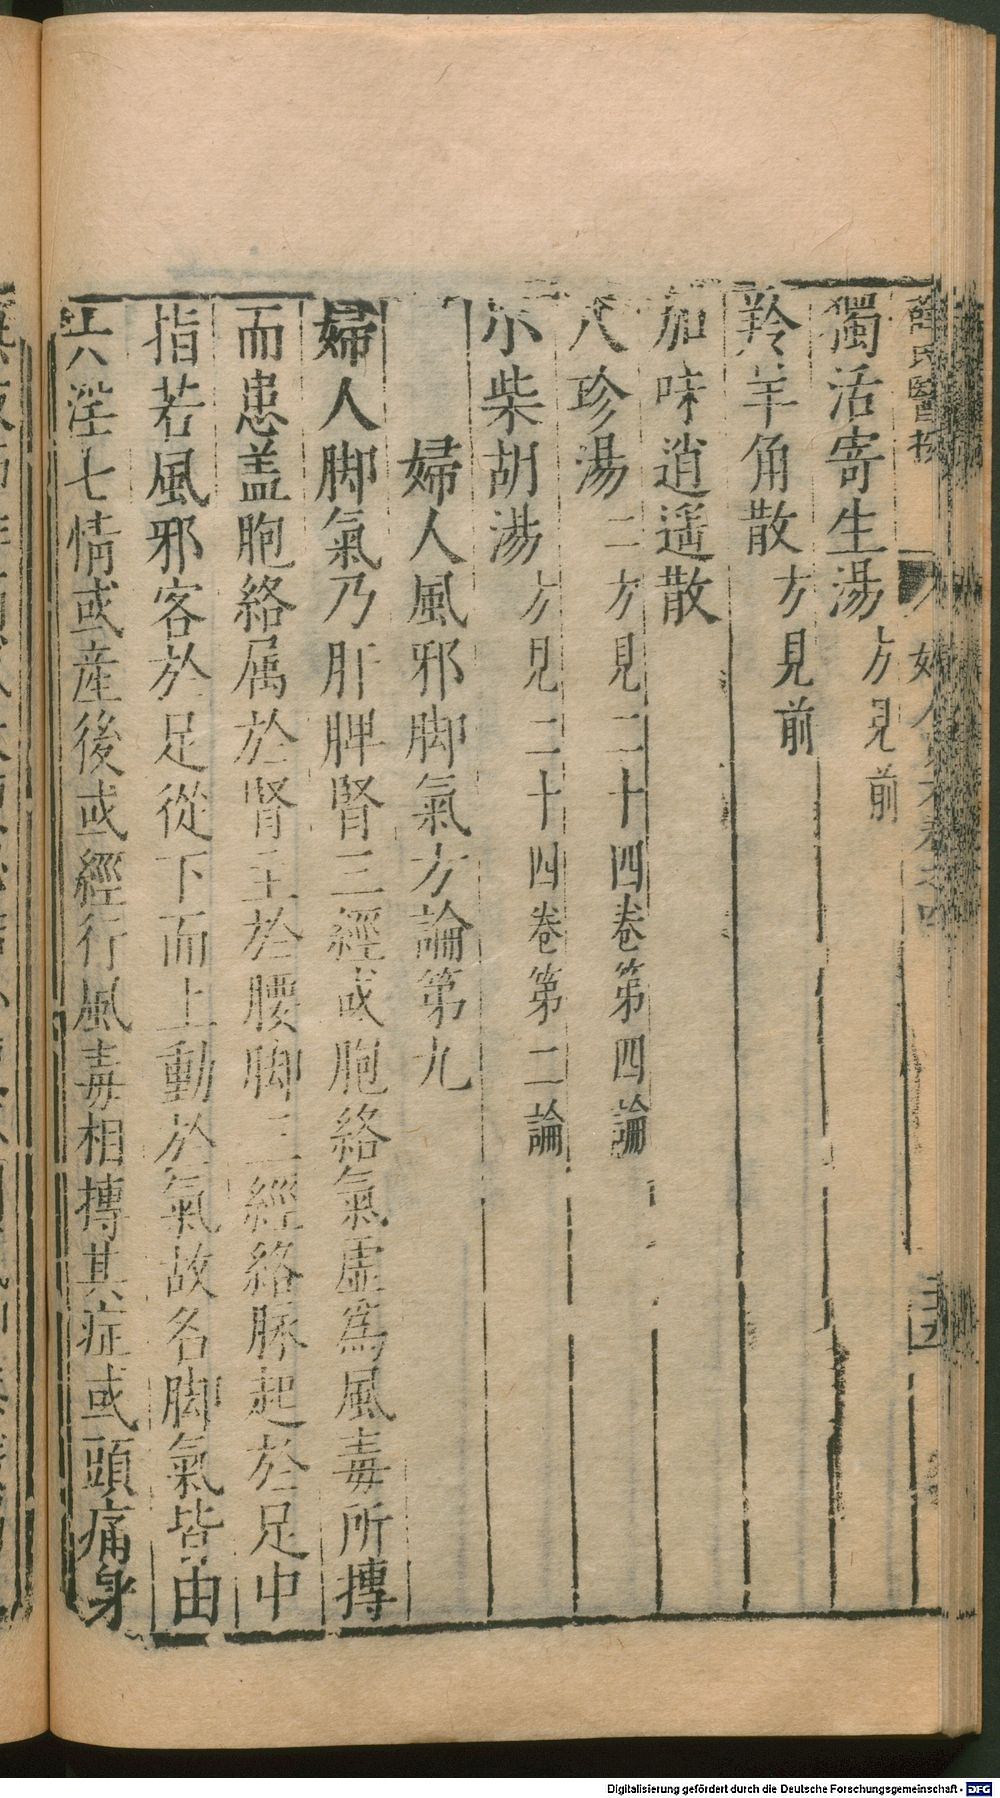 薛氏醫按 婦人良方卷之四
獨活寄生湯方見前
羚羊角散方見前
加味逍遥散
八珍湯二方見二十四卷第四論
小柴胡湯方見二十四卷第二論
婦人風邪脚氣方論第九
婦人脚氣乃肝脾腎三經或胞絡氣虛爲風毒所搏
而患盖胞絡属於腎主於腰脚三經絡脉起於足中
指若風邪客於足從下而上動於氣故名脚氣皆由
六淫七情或産後或經行風毒相搏其症或頭痛身
Digitalisierung gefördert durch die Deutsche Forschungsgemeinschaft - DFG